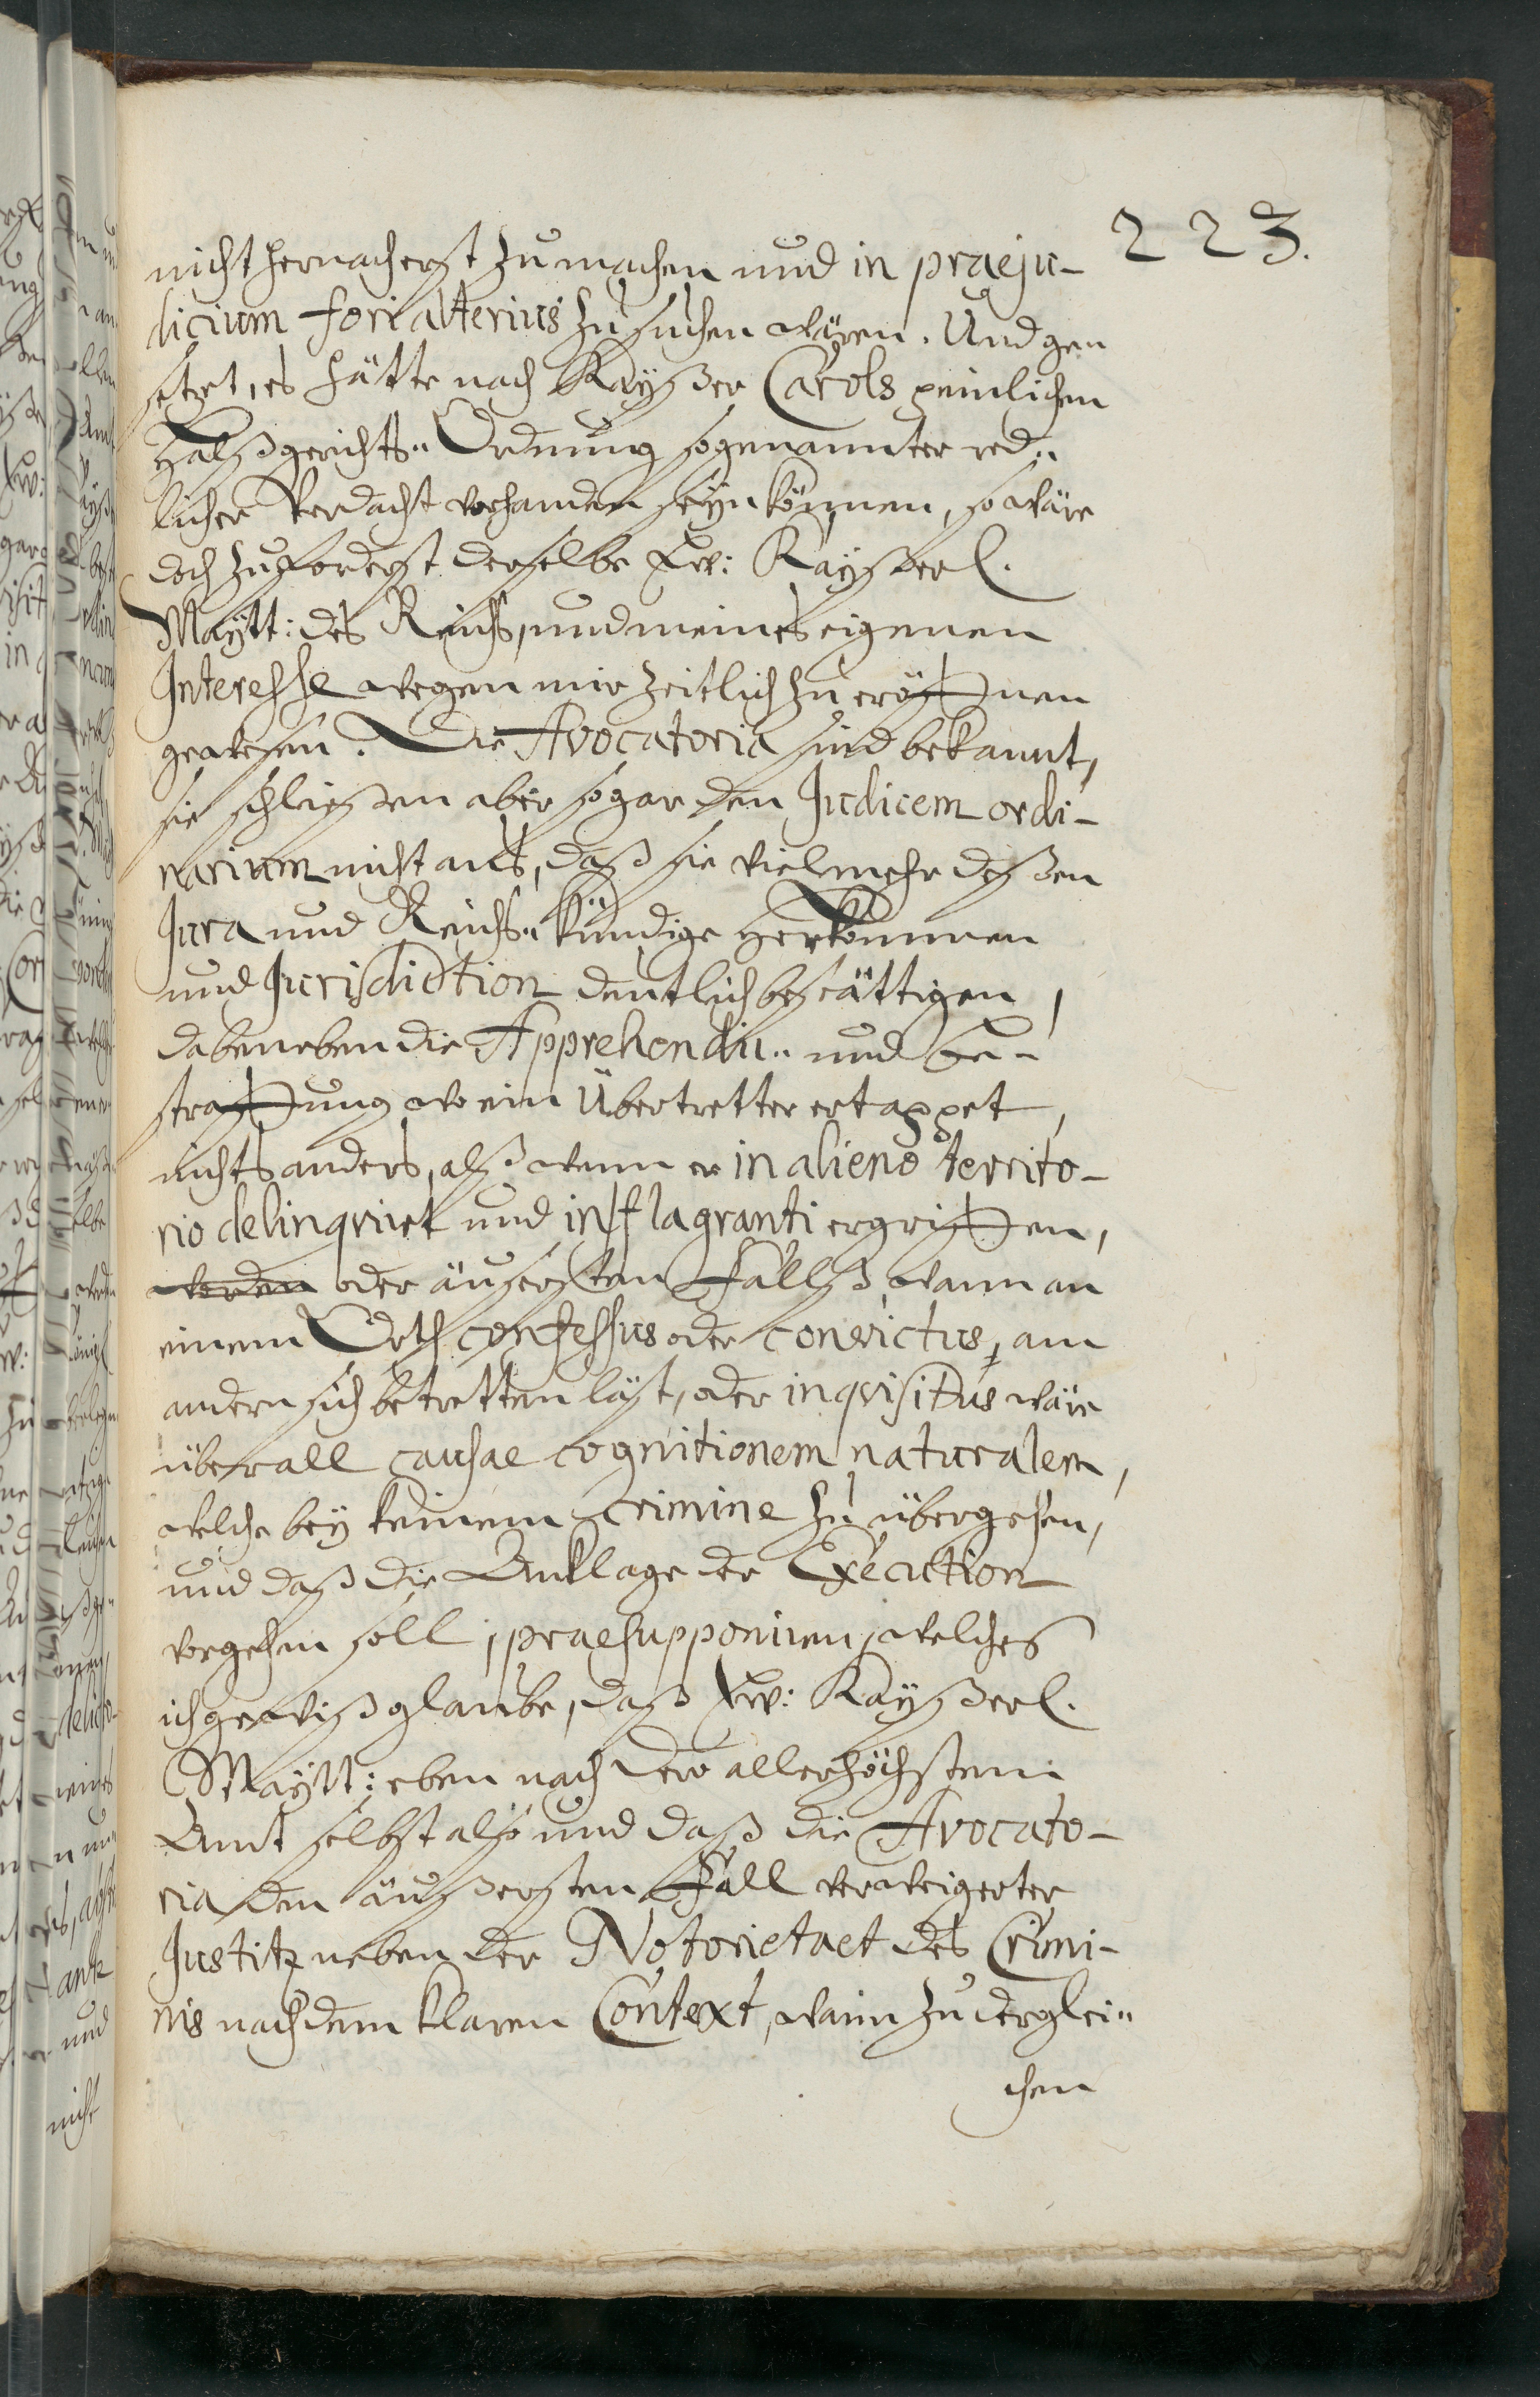 223.
nicht hernacherst zu machen und in praeju-
dicium fori alterius zu suchen wären. Und gen
setzt, es hätte nach Kayßer Carols peinlichen
Halßgerichts" Ordnung sogenannter red"
licher Verdacht vorhanden seÿn können, so wäre
doch zuforderst derselbe Ew: Kayßerl.
Maÿtt: des Reichs, und meines eigenen
Interesse wegen mir zeitlich zu eröffnen
gewesen. Die Avocatoria sind bekannt,
sie schließen aber sogar den Judicem ordi-
narium nicht aus, daß sie vielmehr deßen
Jura und Reichs" kündige Herkommen
und Jurisdiction deutlich bestättigen,
dabeneben die Apprehendir" und be-
straffung wo ein Übertretter ertappet,
nichts anders, alß wenn er in alieno territo-
rio delinqvirt und in flagranti ergriffen,
worden oder äusersten Fallß wann an
einem Orth confessus oder convictus, am
andern sich betretten läst, oder inqvisitus wäre
überall causae cognitionem naturalem,
welche bey keinem Crimine zu übergehen,
und daß die Anklage der Execution
vorgehen soll, praesupponiren, welches
ich gewiß glaube, daß Ew: Kayßerl.
Maÿtt: eben nach Dero allerhöchsten
Amt selbst also und daß die Avocato-
ria den äußersten Fall verweigerter
Justitz neben der Notorietaet des Crimi-
nis nach dem klaren Context, wann zu derglei"
chen